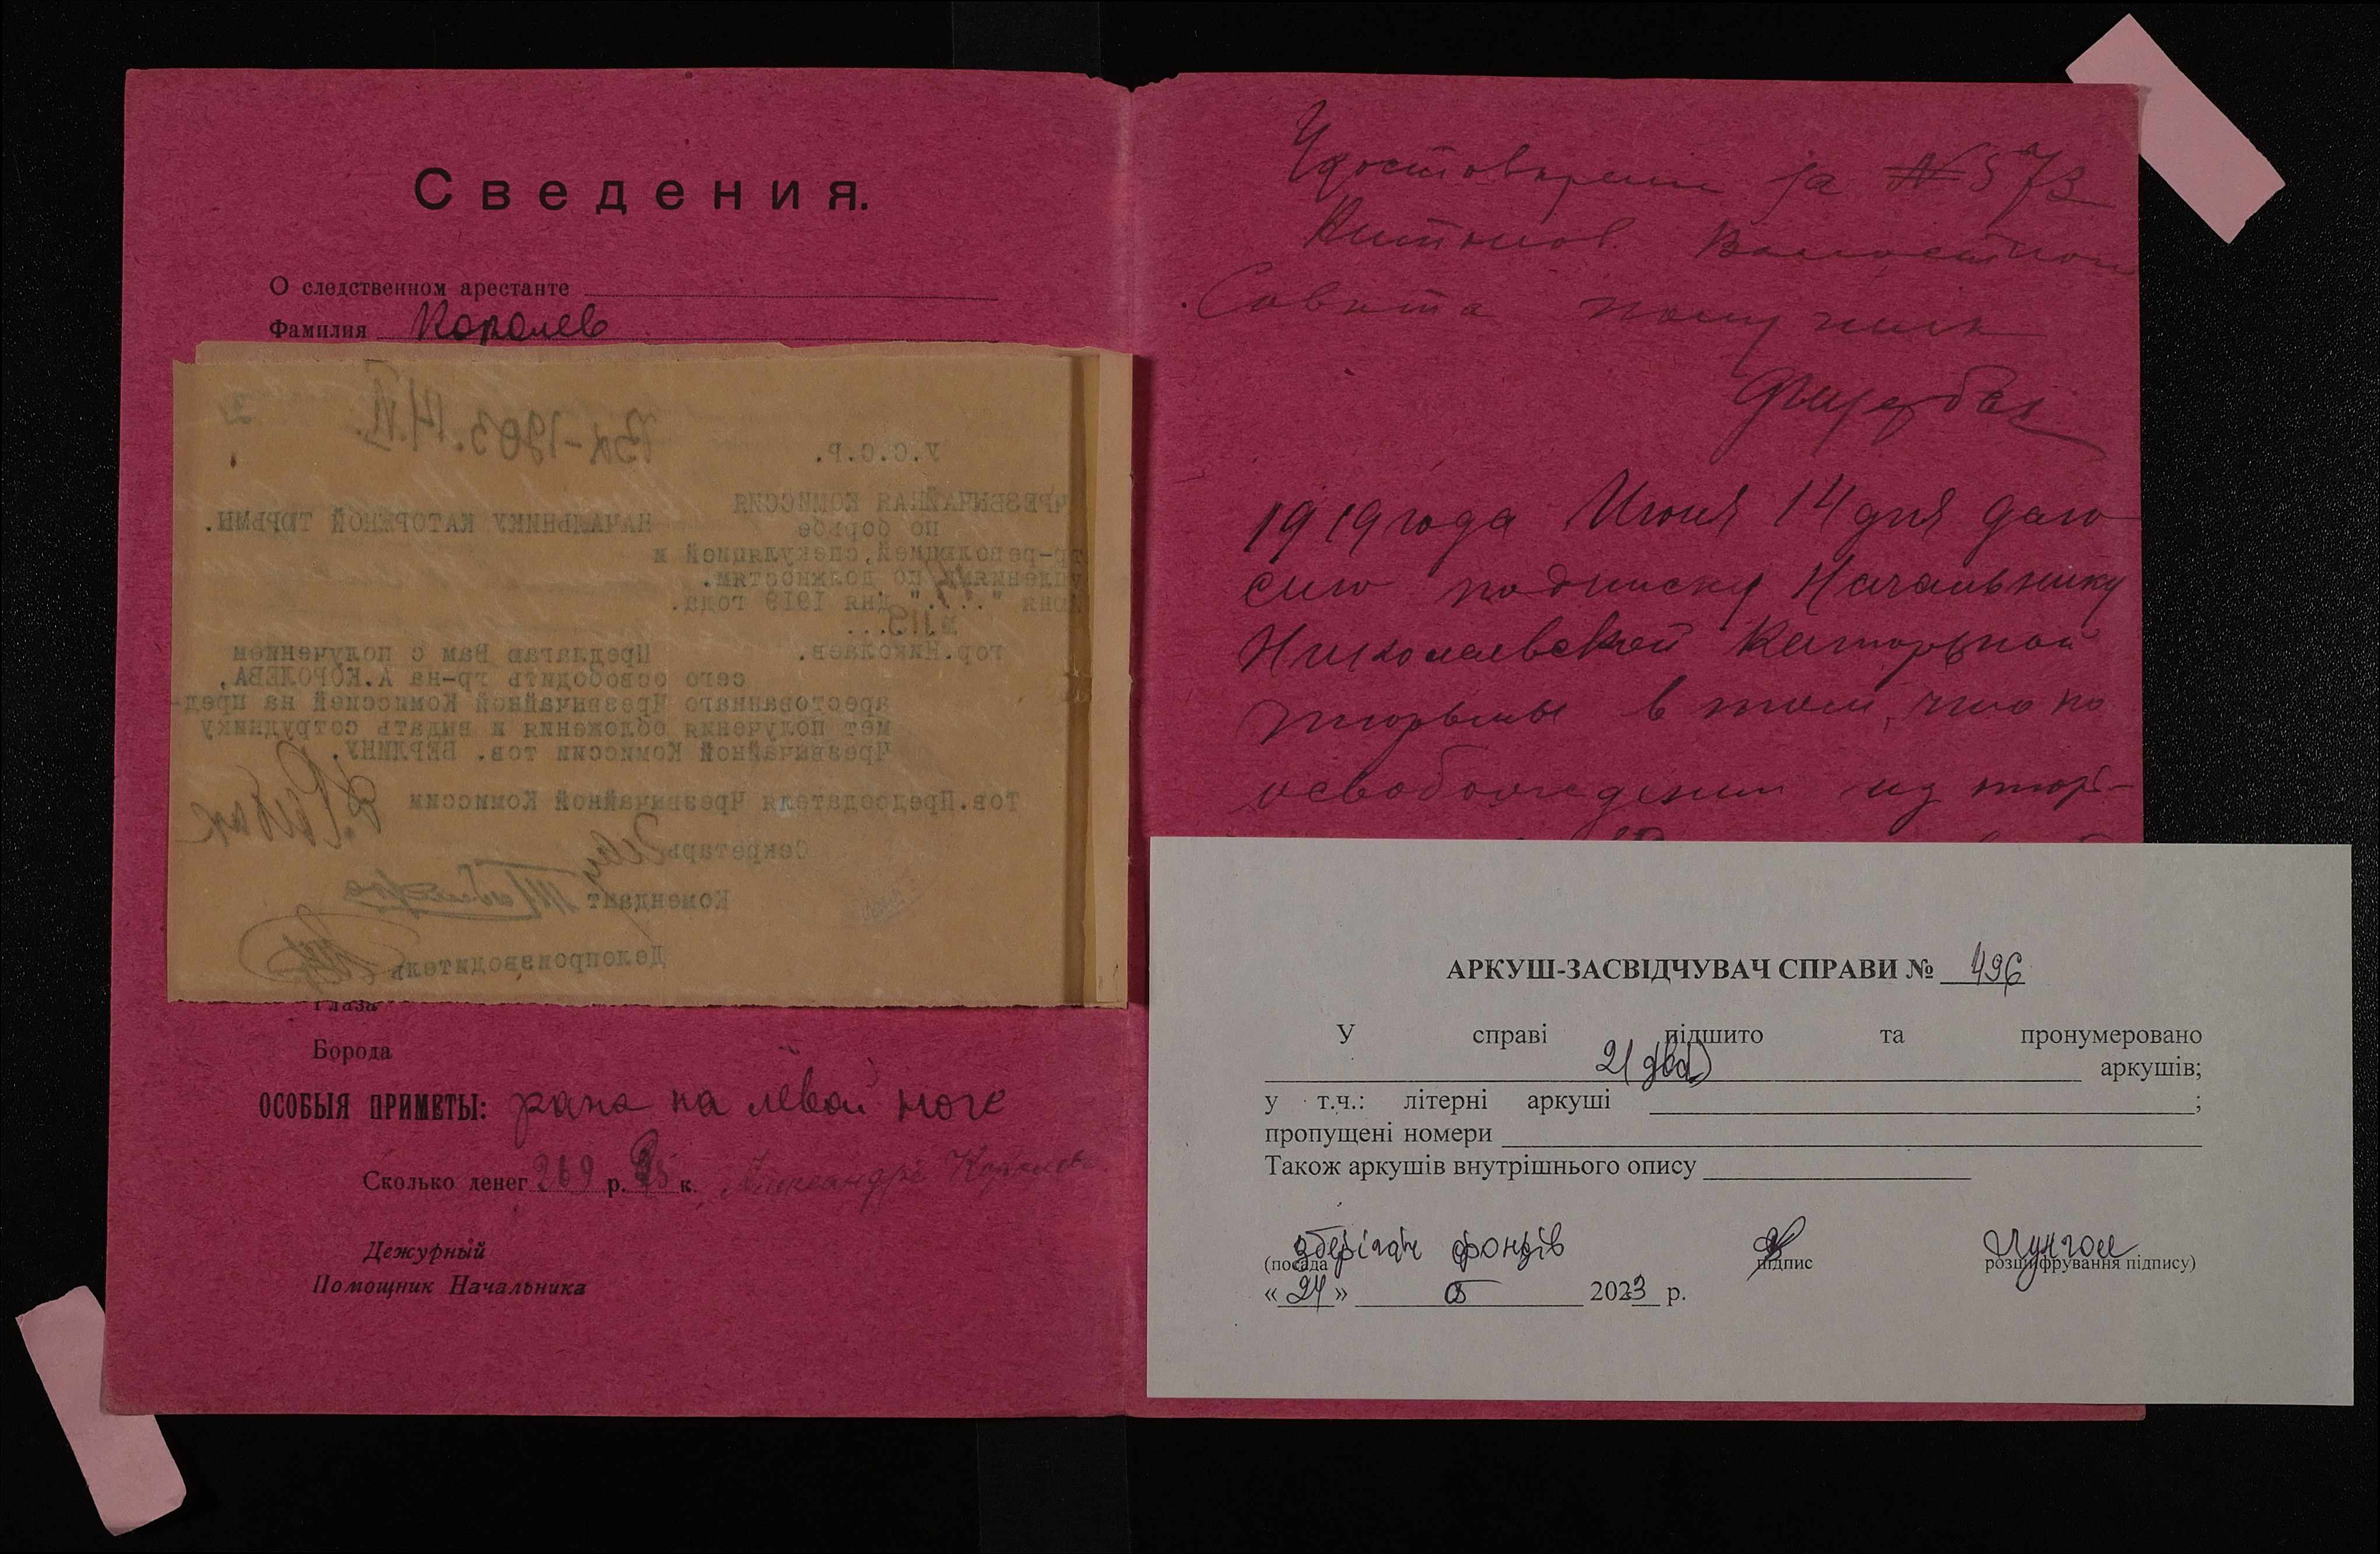 Сведения.
О следственном арестанте
Фамилия Королев
У.С.С.Р.
ЧРЕЗВЫЧАЙНАЯ КОМИССИЯ
НАЧАЛЬНИКУ КАТОРЖНОЙ ТЮРЬМЫ.
по борьбе
тр-революцией, спекуляцией и
уплениями по должностям.
юня "14" дня 1919 года.
гор. Николаев.
Предлагаю Вам с получением
сего освободить гр-на А. КОРОЛЕВА,
арестованнаго Чрезвычайной Комиссией на пред-
мет получения обложения и выдать сотруднику
Чрезвычайной Комиссии тов. БЕРЛИНУ.
Тов. Председателя Чрезвычайной Комиссии
Секретарь
Комендант
Делопроизводитель
Глаза
Борода
ОСОБЫЯ ПРИМЕТЫ: рана на левой ноге
Сколько денег 269 р. 95 к. Александръ Королевъ
Дежурный
Помощник Начальника
Удостоверение за № 573
Волостного
Совета получил
1919 года Июня 14 дня даю
сию подписку Начальнику
Николаевской Каторжной
тюрьмы в том, что по
освобождении из тюрь-
АРКУШ-ЗАСВІДЧУВАЧ СПРАВИ № 496
У справі підшито та пронумеровано
2 (два) аркушів;
у т.ч.: літерні аркуші ;
пропущені номери
Також аркушів внутрішнього опису
зберігач фондів
(посада підпис розшифрування підпису)
« 24 » 2023 р.